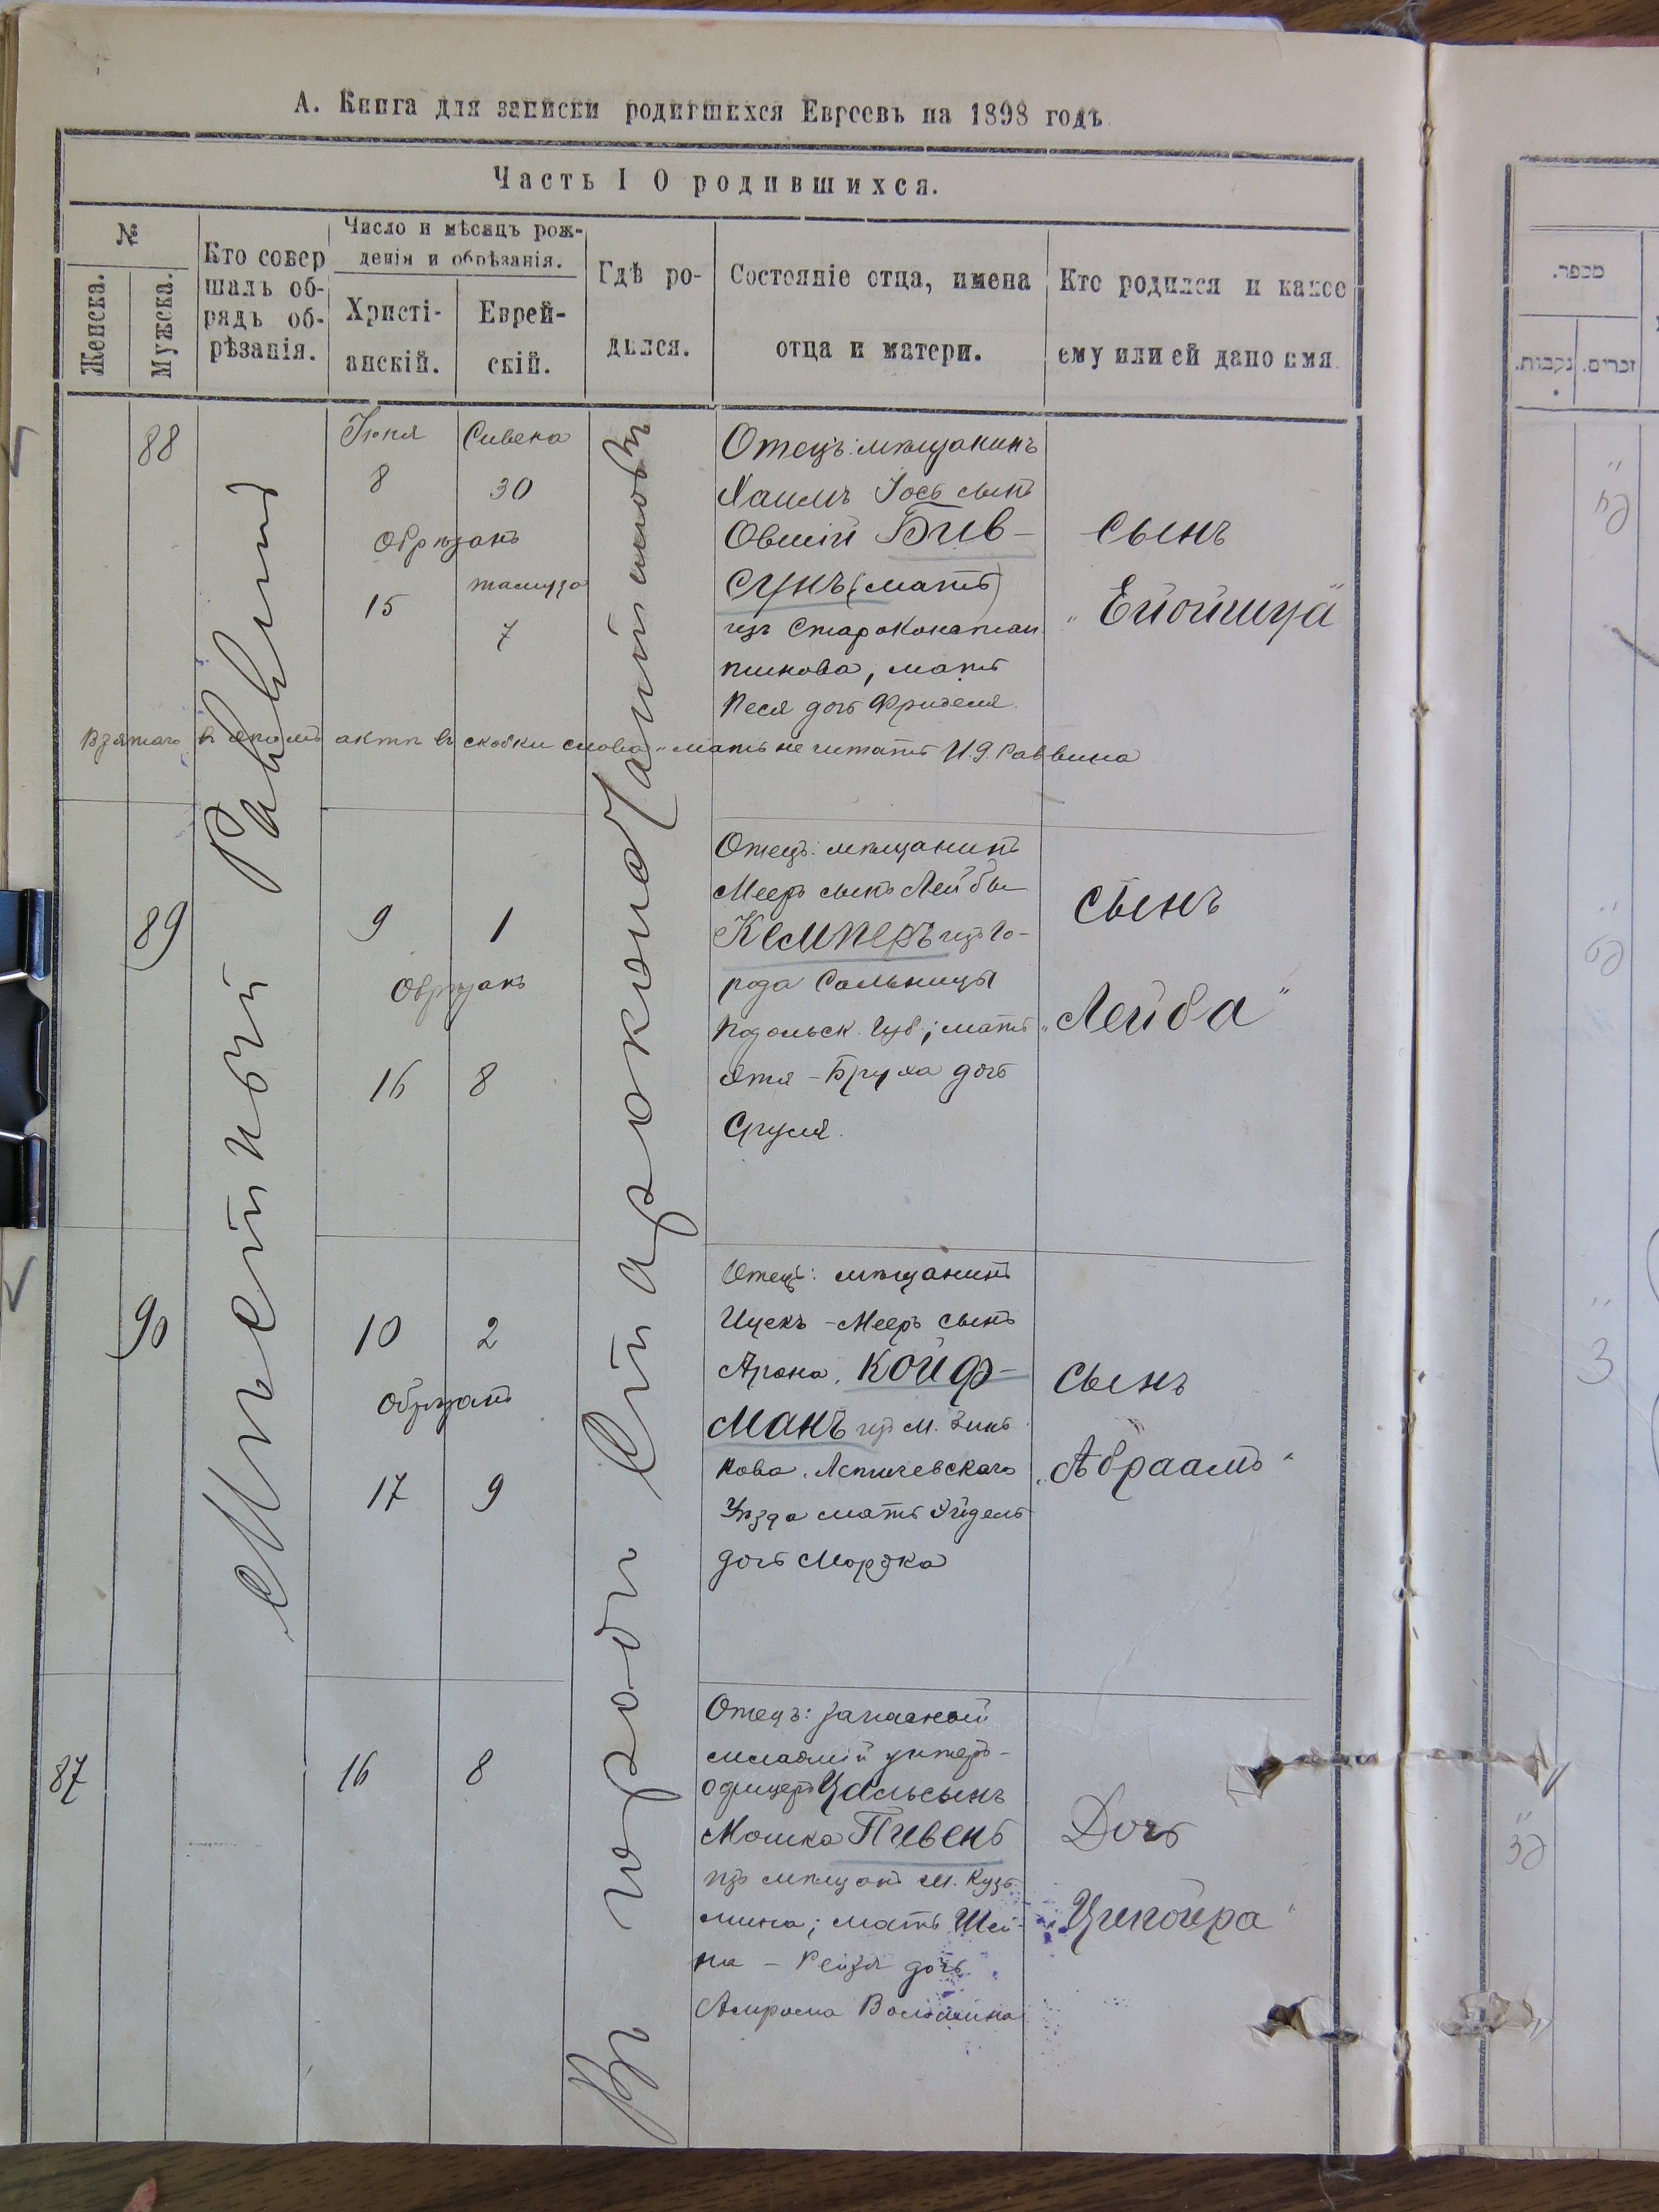 А. Книга для записки родившихся Евреевъ на 1898 годъ
Часть I О родившихся.
№
Женска.
Мужска.
Кто совер
шалъ об-
рядъ об-
рѣзанія.
Число и мѣсяцъ рож-
денія и обрѣзанія.
Христі-
анскій.
Еврей-
скій.
Гдѣ ро-
дился.
Состояніе отца, имена
отца и матери.
Кто родился и какое
ему или ей дано имя.
Мѣстный Раввинъ
Въ городѣ Староконстантиновѣ
88
Іюня
Сивена
8
30
Обрѣзанъ
тамуза
15
7
Отецъ: мѣщанинъ
Хаимъ Іось сынъ
Овшій Бив-
сунъ (мать)
изъ Староконстан
тинова, мать
Песя дочь Фриделя.
сынъ
"Ейойшуа"
Взятаго въ этомъ актѣ въ скобки слова "мать не читать И.д. Раввина
89
9
1
Обрѣзанъ
16
8
Отецъ: мѣщанинъ
Мееръ сынъ Лейбы
Кемперъ изъ го-
рода Сальницы
Подольск. губ; мать
Этя-Бруха дочь
Сруля.
сынъ
"Лейба"
90
10
2
Обрѣзанъ
17
9
Отецъ: мѣщанинъ
Ицекъ-Мееръ сынъ
Арона, Койф-
манъ изъ м. Зинь
кова, Летичевскаго
Уѣзда мать Эйдель
дочь Мордка
сынъ
"Абраамъ"
87
16
8
Отецъ: запасной
младшій унтеръ-
офицеръ Цаль сынъ
Мошка Пивень
изъ мѣщанъ м. Кузь
мина; мать Шей-
на - Рейзя дочь
Амрома Волошина
Дочь
"Ципойра"
מספר.
זכרים.
נקבות.